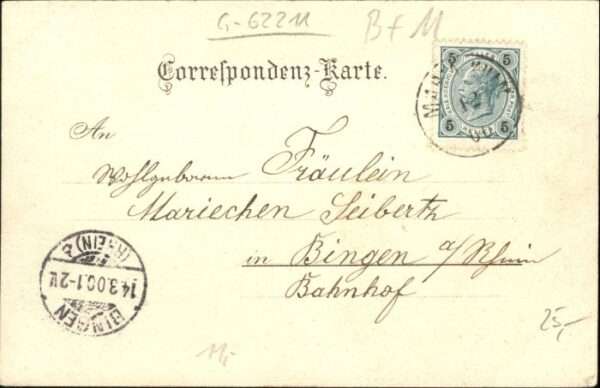 G-62211
BfM
Correspondenz-Karte.
5 5
5 5
An
Wohlgeboren Fräulein
Mariechen Seibertz
in Bingen a/Rhein
Bahnhof
BINGEN
14.3.00.1-2N.
(RHEIN) 2
25,-
11,-